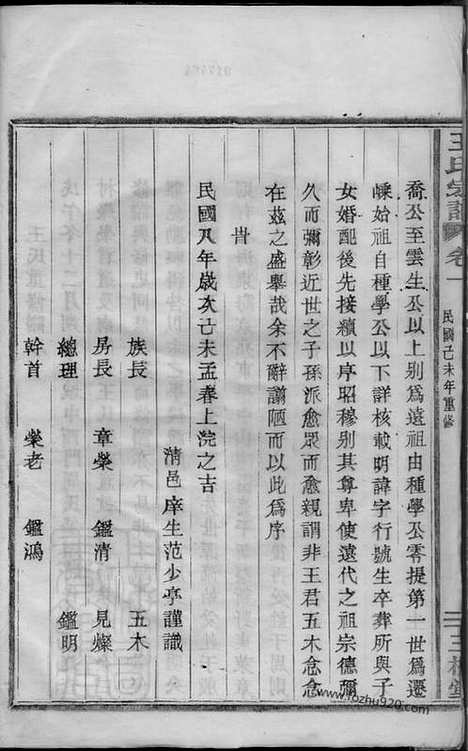 王氏宗譜 卷一 民國己未年重修 三槐堂
喬公至雲生公以上别為遠祖由種學公零提第一世為遷
嵊始祖自種學公以下詳核載明諱字行號生卒葬所與子
女婚配後先接續以序昭穆别其尊卑使遠代之祖宗德彌
久而彌彰近世之子孫派愈眾而愈親謂非王君五木念念
在茲之盛舉哉余不辭譾陋而以此為序
旹
民國八年歲次己未孟春上浣之吉
清邑庠生范少亭謹識
族長 五木
房長 章榮 鑑清 見燦
總理 鑑明
幹首 榮老 鑑鴻
www.foxzhu920.com